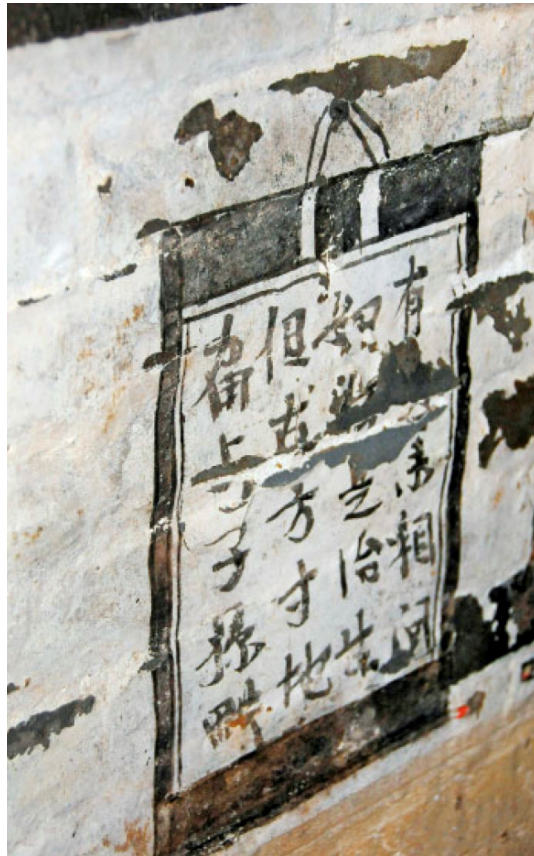 有来相问
之治生
但存方寸地
留与子孫耕